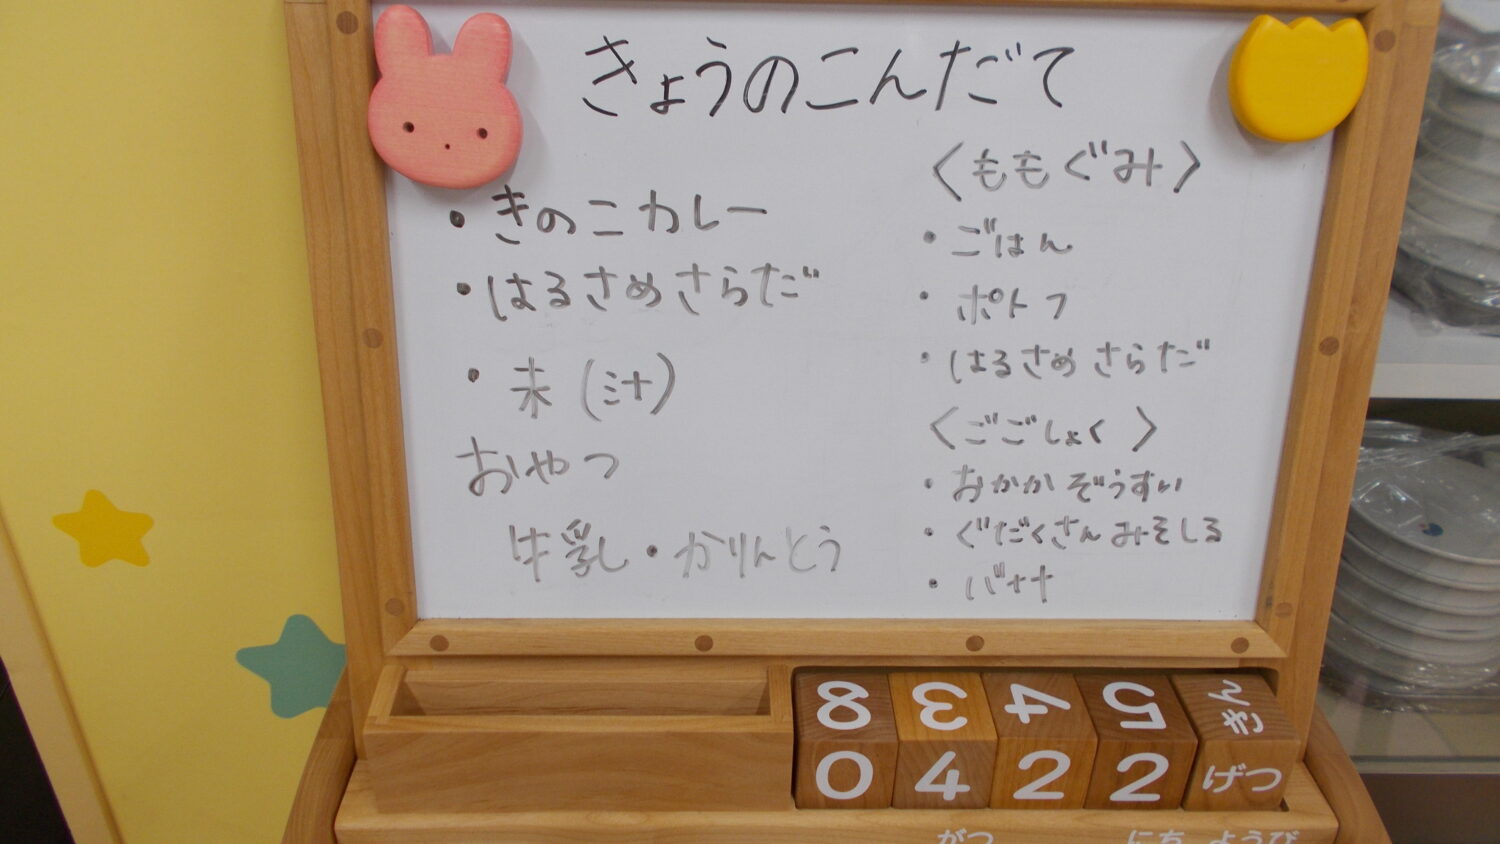 きょうのこんだて
・きのこカレー
・はるさめさらだ
・未(汁)
おやつ
牛乳・かりんとう
〈ももぐみ〉
・ごはん
・ポトフ
・はるさめさらだ
〈ごごしょく〉
・おかかぞうすい
・ぐだくさんみそしる
・バナナ
8 3 4 5 きん
0 4 2 2 げつ
がつ にち ようび